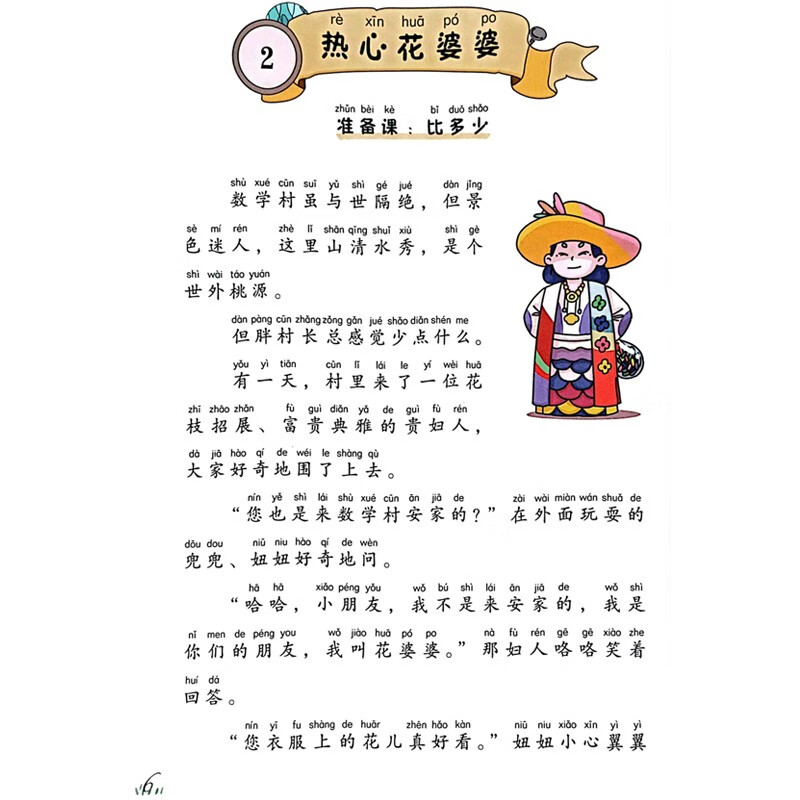 rè xīn huā pó po
2 热心花婆婆
zhǔn bèi kè bǐ duō shǎo
准备课：比多少
shù xué cūn suī yǔ shì gé jué dàn jǐng
数学村虽与世隔绝，但景
sè mí rén zhè lǐ shān qīng shuǐ xiù shì gè
色迷人，这里山清水秀，是个
shì wài táo yuán
世外桃源。
dàn pàng cūn zhǎng zǒng gǎn jué shǎo diǎn shén me
但胖村长总感觉少点什么。
yǒu yì tiān cūn lǐ lái le yí wèi huā
有一天，村里来了一位花
zhī zhāo zhǎn fù guì diǎn yǎ de guì fù rén
枝招展、富贵典雅的贵妇人，
dà jiā hào qí de wéi le shàng qù
大家好奇地围了上去。
nín yě shì lái shù xué cūn ān jiā de zài wài miàn wán shuǎ de
“您也是来数学村安家的？”在外面玩耍的
dōu dou niū niu hào qí de wèn
兜兜、妞妞好奇地问。
hā hā xiǎo péng yǒu wǒ bú shì lái ān jiā de wǒ shì
“哈哈，小朋友，我不是来安家的，我是
nǐ men de péng you wǒ jiào huā pó po nà fù rén gē gē xiào zhe
你们的朋友，我叫花婆婆。”那妇人咯咯笑着
huí dá
回答。
nín yī fu shàng de huār zhēn hǎo kàn niū niu xiǎo xīn yì yì
“您衣服上的花儿真好看。”妞妞小心翼翼
6